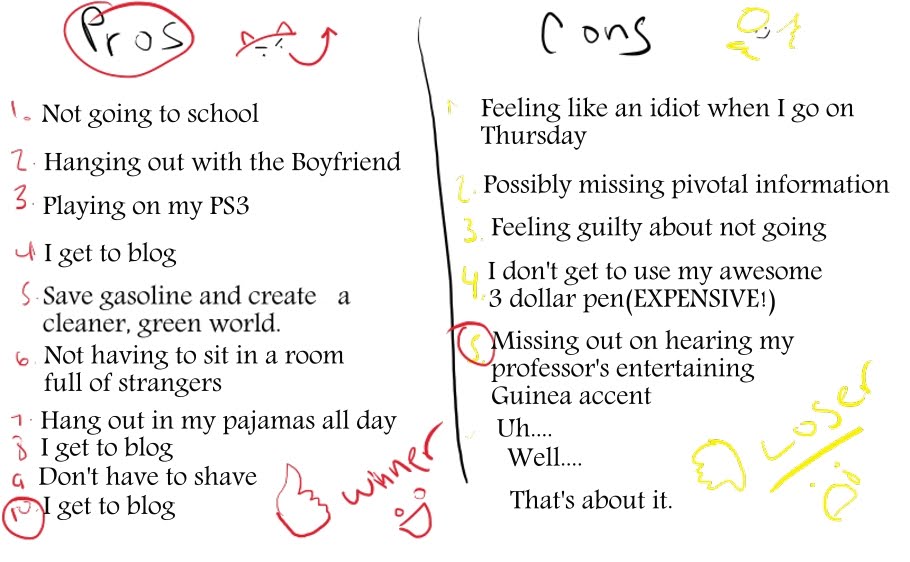 Pros
1. Not going to school
2. Hanging out with the Boyfriend
3. Playing on my PS3
4 I get to blog
5. Save gasoline and create a
cleaner, green world.
6. Not having to sit in a room
full of strangers
7. Hang out in my pajamas all day
8 I get to blog
9 Don't have to shave
10. I get to blog
winner
Cons
1 Feeling like an idiot when I go on
Thursday
2. Possibly missing pivotal information
3. Feeling guilty about not going
4. I don't get to use my awesome
3 dollar pen(EXPENSIVE!)
5. Missing out on hearing my
professor's entertaining
Guinea accent
Uh....
Well....
That's about it.
Loser